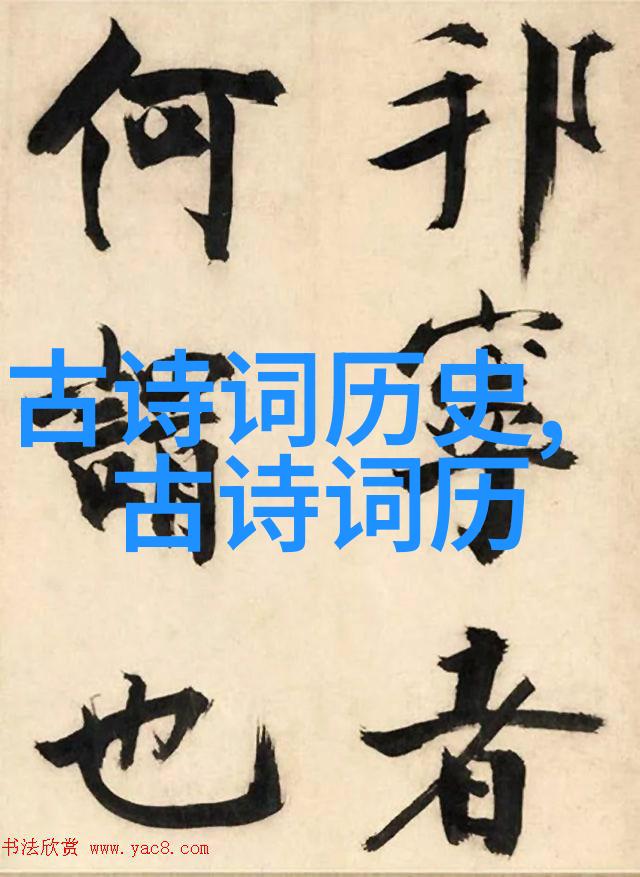 邦寧者
何謂也
古诗词历史,
古诗词历
书法欣赏 www.yac8.com